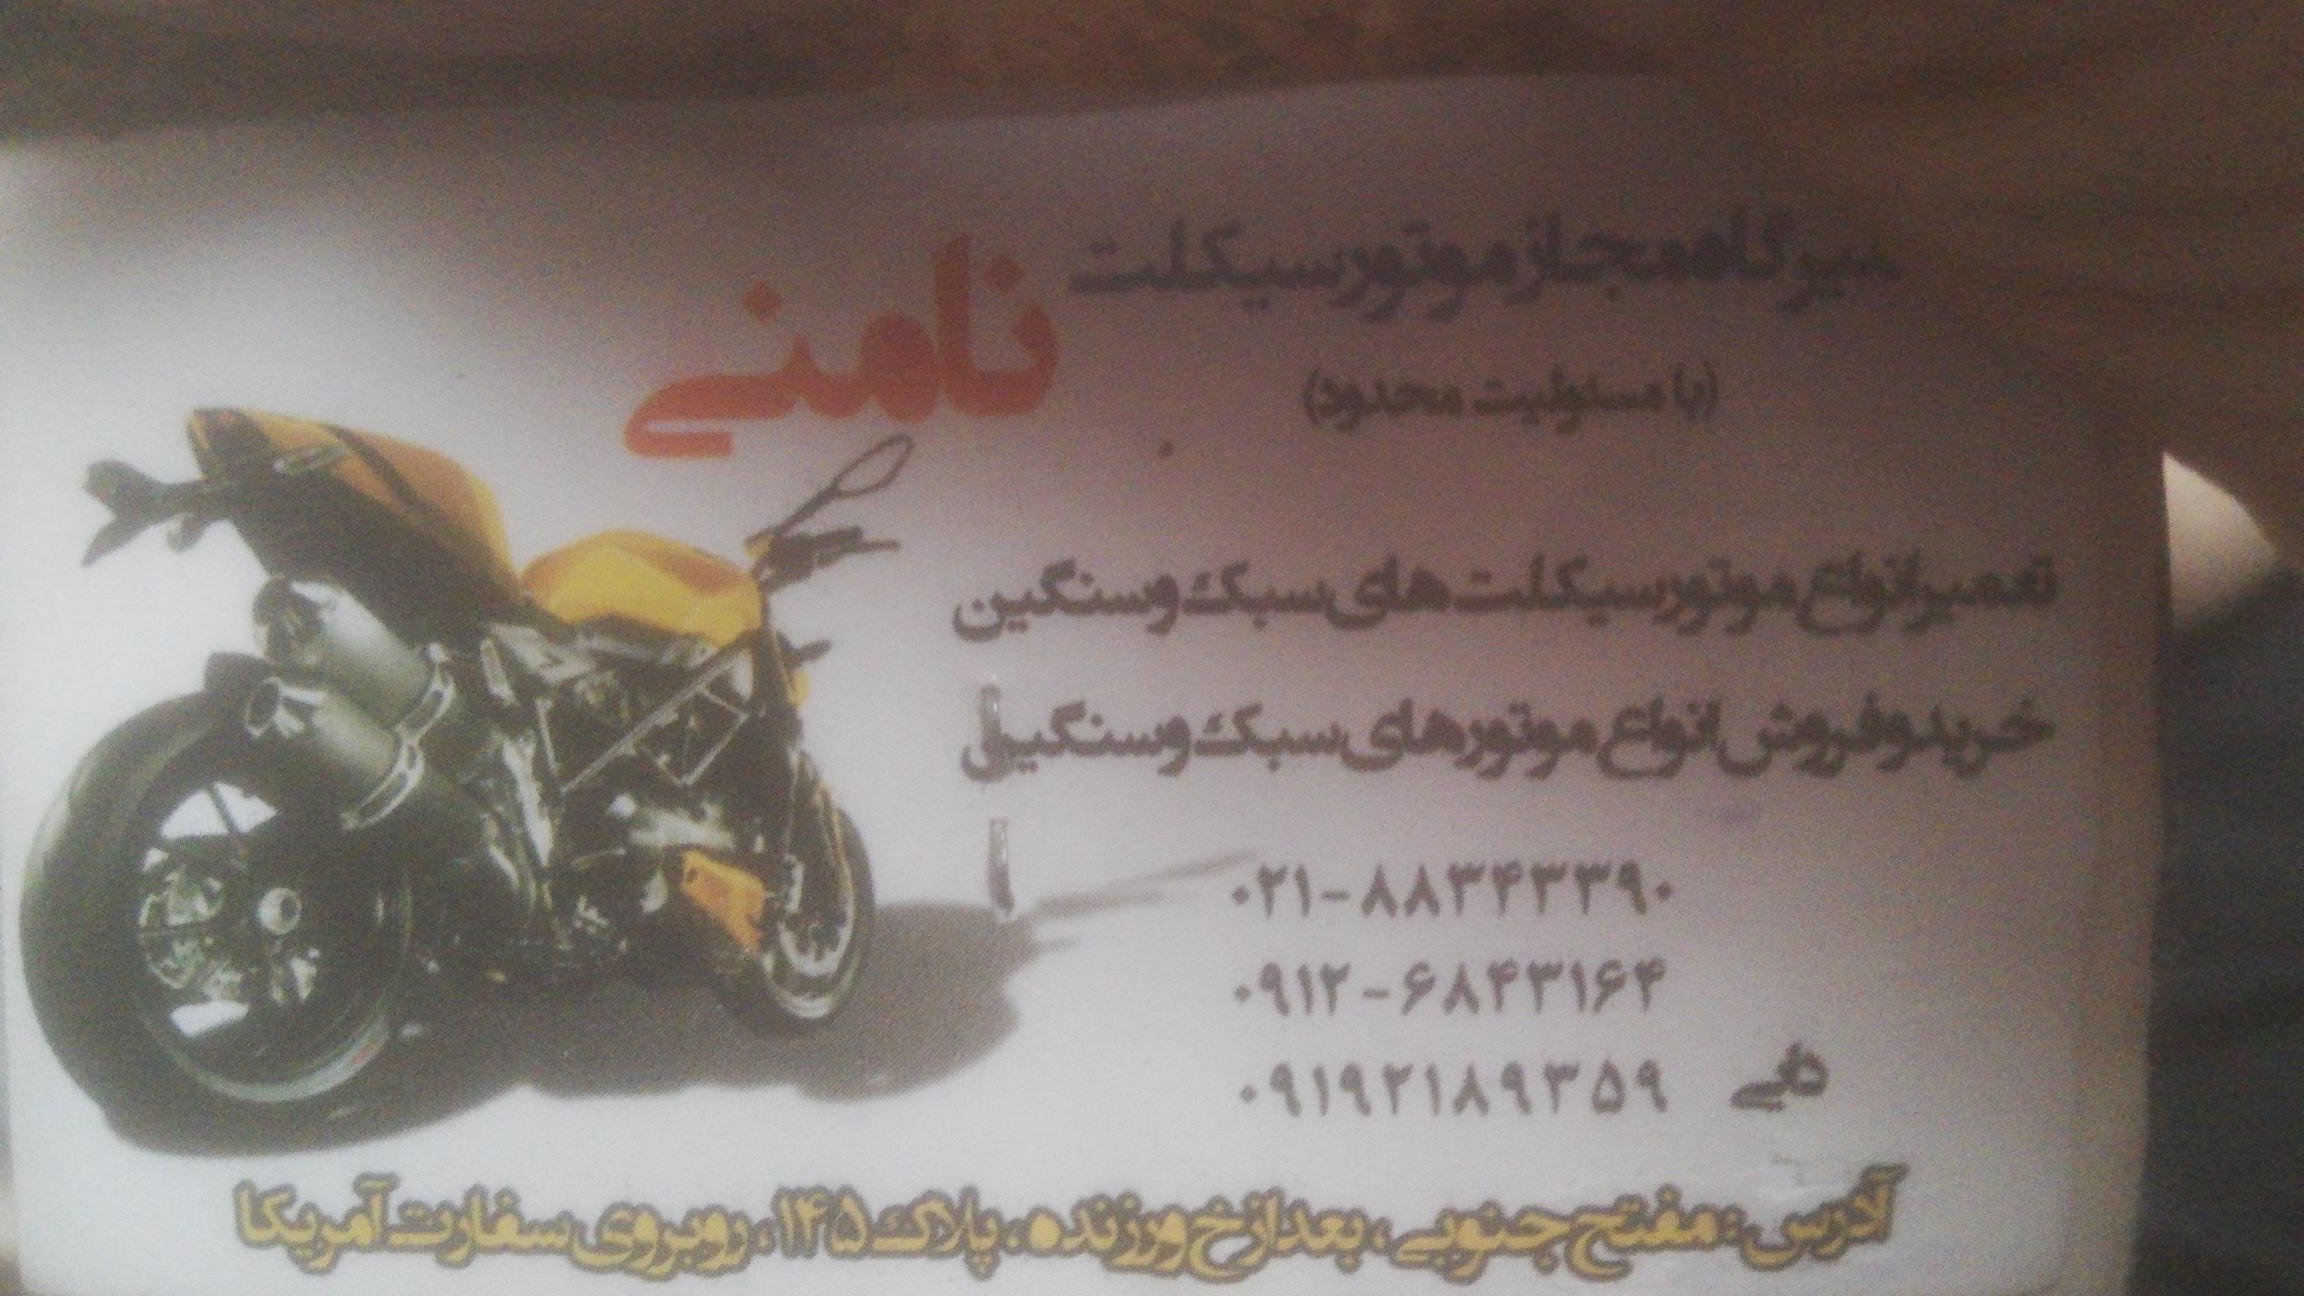 تعمیرگاه مجاز موتورسیکلت نامنی
(با مسئولیت محدود)
تعمیر انواع موتورسیکلت های سبک و سنگین
خرید و فروش انواع موتورهای سبک و سنگین
۰۲۱-۸۸۳۴۳۳۹۰
۰۹۱۲-۶۸۴۳۱۶۴
۰۹۱۹۲۱۸۹۳۵۹ دایی
آدرس: مفتح جنوبی، بعد از خ ورزنده، پلاک ۱۴۵، روبروی سفارت آمریکا